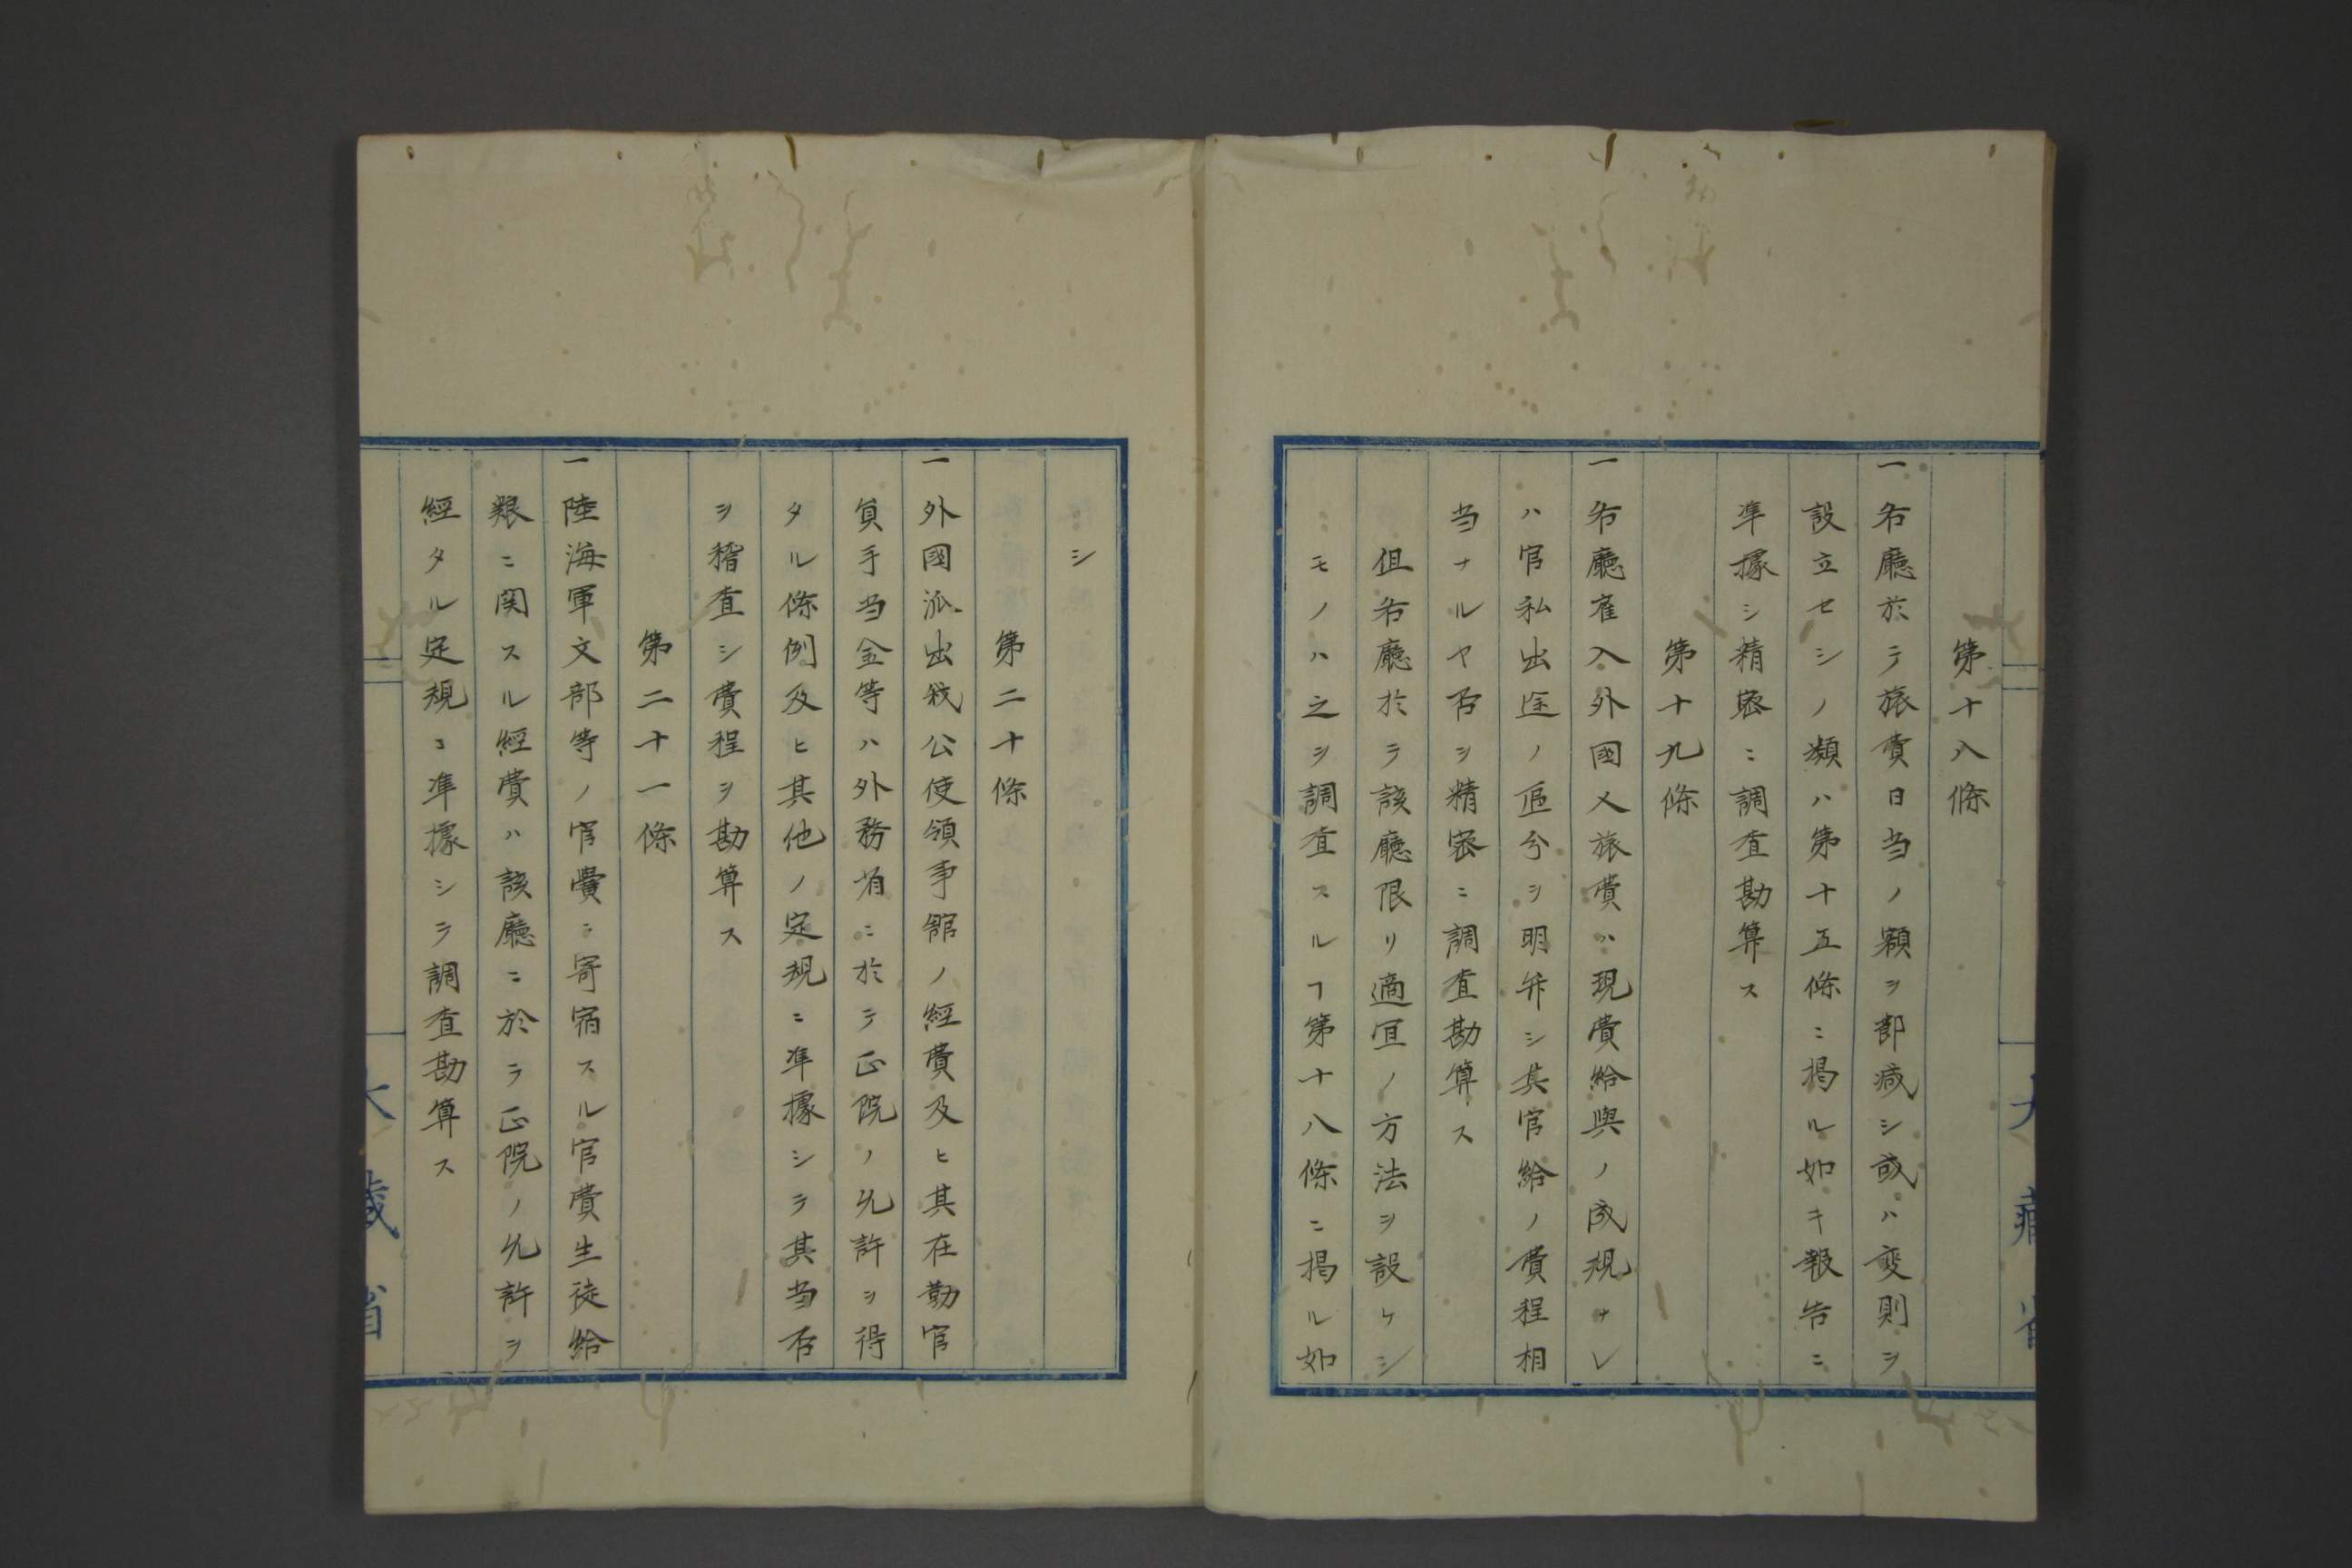 第十八條
一各廳於テ旅費日当ノ額ヲ都減シ或ハ変則ヲ
設立セシノ類ハ第十五條ニ掲ル如キ報告ニ
準據シ精密ニ調査勘算ス
第十九條
一各廳雇入外國人旅費ハ現費給與ノ成規ナレ
ハ官私出途ノ區分ヲ明弁シ其官給ノ費程相
当ナルヤ否ヲ精密ニ調査勘算ス
但各廳於テ該廳限リ適宜ノ方法ヲ設ケシ
モノハ之ヲ調査スルヿ第十八條ニ掲ル如
シ
第二十條
一外國派出我公使領事館ノ經費及ヒ其在勤官
員手当金等ハ外務省ニ於テ正院ノ允許ヲ得
タル條例及ヒ其他ノ定規ニ準據シテ其当否
ヲ稽査シ費程ヲ勘算ス
第二十一條
一陸海軍文部等ノ官黌ニ寄宿スル官費生徒給
粮ニ関スル經費ハ該廳ニ於テ正院ノ允許ヲ
經タル定規ニ準據シテ調査勘算ス
大藏省